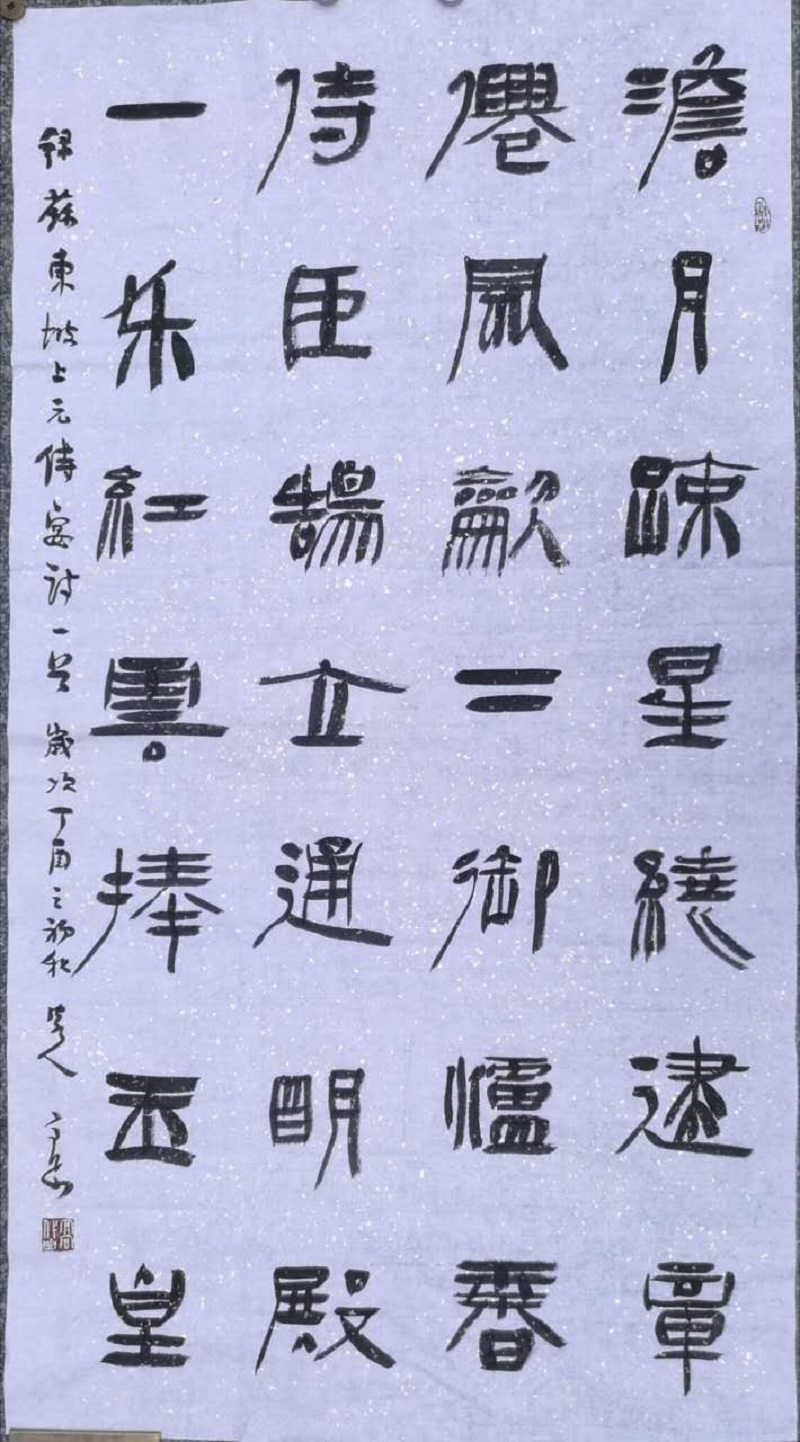 澹月踈星繞建章
僊風龡下御爐香
侍臣鵠立通明殿
一朵紅雲捧玉皇
錄蘇東坡上元侍宴詩一首 歲次丁酉之初秋